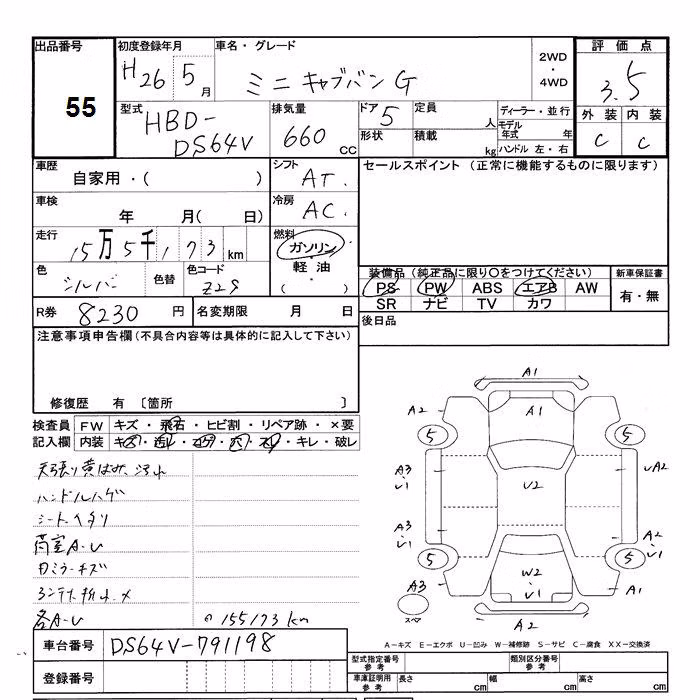 出品番号
55
初度登録年月
H26 5月
車名・グレード
ミニキャブバン G
2WD
・
4WD
評価点
3.5
外装 内装
C C
型式
HBD-
DS64V
排気量
660 CC
ドア 5
形状
定員 人
積載 kg
ディーラー・並行
モデル
年式 年
ハンドル 左・右
車歴
自家用・( )
シフト
AT.
車検
年 月( 日)
冷房
AC.
走行
15万5千173km
燃料
ガソリン
・
軽油
( )
色
シルバー
色替
色コード
Z2S
R券 8230 円
名変期限 月 日
セールスポイント (正常に機能するものに限ります)
装備品 (純正品に限り○をつけてください)
PS PW ABS エアB AW
SR ナビ TV カワ
新車保証書
有・無
後日品
注意事項申告欄(不具合内容等は具体的に記入して下さい)
修復歴 有 〔箇所 〕
検査員
記入欄
FW キズ・飛石・ヒビ割・リペア跡・×要
内装
キレ・破レ
天張り黄ばみ、汚れ
ハンドルハゲ
シートヘタリ
荷室A.U
各A-U
155173km
車台番号 DS64V-791198
登録番号
A1
A2
A1
5
5
A3
U1
U2
UA2
A3
U1
A2
U1
5
5
W2
U1
A3
スペア
A2
A-キズ E-エクボ U-凹み W-補修跡 S-サビ C-腐食 XX-交換済
型式指定番号
参考
類別区分番号
参考
車庫証明用
参考
長さ cm
幅 cm
高さ cm